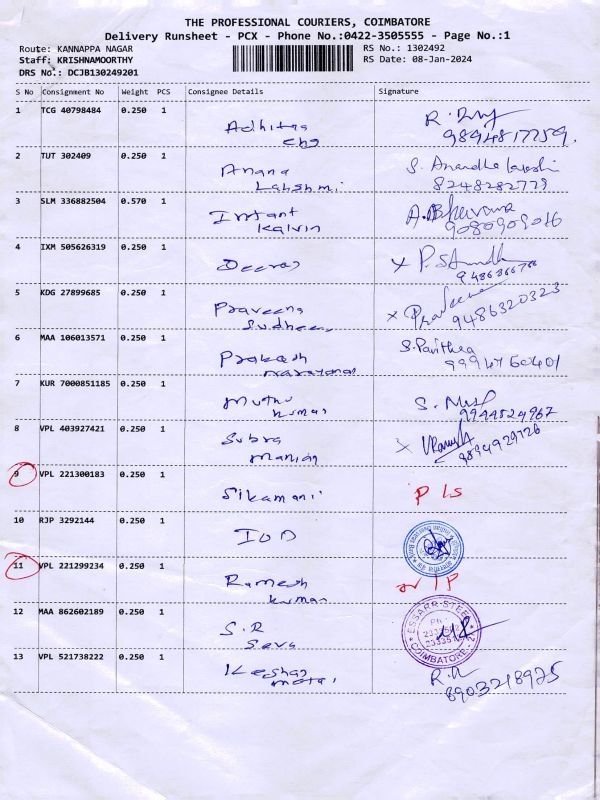 THE PROFESSIONAL COURIERS, COIMBATORE
Delivery Runsheet - PCX - Phone No.:0422-3505555 - Page No.:1
Route: KANNAPPA NAGAR RS No.: 1302492
Staff: KRISHNAMOORTHY RS Date: 08-Jan-2024
DRS No.: DCJB130249201
S No Consignment No Weight PCS Consignee Details Signature
1 TCG 40798484 0.250 1
9894817759.
2 TUT 302409 0.250 1 Anana
Lakshmi 8248282779
3 SLM 336882504 0.570 1 Infant
Kalvin 9080909086
4 IXM 505626319 0.250 1 Deeraj
5 KDG 27899685 0.250 1 Praveena Praveena
Sudheer 9486320323
6 MAA 106013571 0.250 1 Prakash
Narayanan 9994760401
7 KUR 7000851185 0.250 1 Muthu
Kumar 9944524967
8 VPL 403927421 0.250 1 Subra
Manian 9894929726
9 VPL 221300183 0.250 1 Sikamani P LS
10 RJP 3292144 0.250 1
11 VPL 221299234 0.250 1 Ramesh
Kumar
12 MAA 862602189 0.250 1 S.R ESSARR STEEL
Seva COIMBATORE
13 VPL 521738222 0.250 1 R.
8903218925